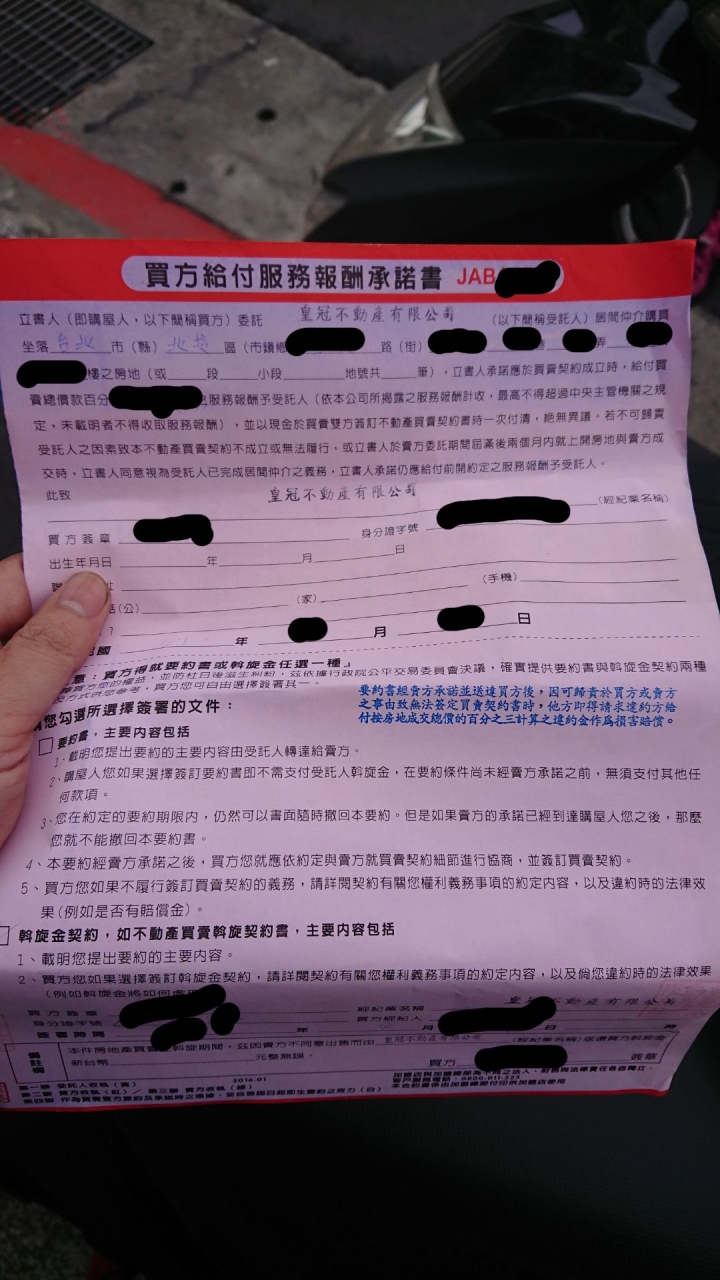 買方給付服務報酬承諾書 JAB
立書人（即購屋人，以下簡稱買方）委託 皇冠不動產有限公司 （以下簡稱受託人）居間仲介購買
坐落 台北 市（縣） 北投 區（市鎮鄉 路（街） 弄
樓之房地（或 段 小段 地號共 筆），立書人承諾應於買賣契約成立時，給付買
賣總價款百分 服務報酬予受託人（依本公司所揭露之服務報酬計收，最高不得超過中央主管機關之規
定，未載明者不得收取服務報酬），並以現金於買賣雙方簽訂不動產買賣契約書時一次付清，絕無異議。若不可歸責
受託人之因素致本不動產買賣契約不成立或無法履行，或立書人於賣方委託期間屆滿後兩個月內就上開房地與賣方成
交時，立書人同意視為受託人已完成居間仲介之義務，立書人承諾仍應給付前開約定之服務報酬予受託人。
此致 皇冠不動產有限公司 （經紀業名稱）
買方簽章 身分證字號
出生年月日 年 月 日
址 （手機）
（公） （家）
國 年 月 日
意：買方得就要約書或斡旋金任選一種」
您的權益，並防杜日後滋生糾紛，茲依據行政院公平交易委員會決議，確實提供要約書與斡旋金契約兩種
方式供您參考，買方您可自由選擇簽署其一。
您勾選所選擇簽署的文件：
要約書經賣方承諾並送達買方後，因可歸責於買方或賣方
之事由致無法簽定買賣契約書時，他方即得請求違約方給
付按房地成交總價的百分之三計算之違約金作為損害賠償。
□ 要約書，主要內容包括
1、載明您提出要約的主要內容由受託人轉達給賣方。
2、購屋人您如果選擇簽訂要約書即不需支付受託人斡旋金，在要約條件尚未經賣方承諾之前，無須支付其他任
何款項。
3、您在約定的要約期限內，仍然可以書面隨時撤回本要約。但是如果賣方的承諾已經到達購屋人您之後，那麼
您就不能撤回本要約書。
4、本要約經賣方承諾之後，買方您就應依約定與賣方就買賣契約細節進行協商，並簽訂買賣契約。
5、買方您如果不履行簽訂買賣契約的義務，請詳閱契約有關您權利義務事項的約定內容，以及違約時的法律效
果（例如是否有賠償金）。
□ 斡旋金契約，如不動產買賣斡旋契約書，主要內容包括
1、載明您提出要約的主要內容。
2、買方您如果選擇簽訂斡旋金契約，請詳閱契約有關您權利義務事項的約定內容，以及倘您違約時的法律效果
（例如斡旋金將如何處
買方簽章 經紀業名稱 皇冠不動產有限公司
身分證字號 買方經紀人
簽署時間 年 月 日 時
備註欄
本件房地產買賣 斡旋期間，茲因賣方不同意出售而由 皇冠不動產有限公司 （經紀業名稱）返還買方斡旋金
新台幣 元整無誤。 買方 簽章
第一聯 受託人收執（黃）
第二聯 買方收執（紅）／第三聯 賣方收執（綠）
2016.01
客戶服務電話：0800-011-233